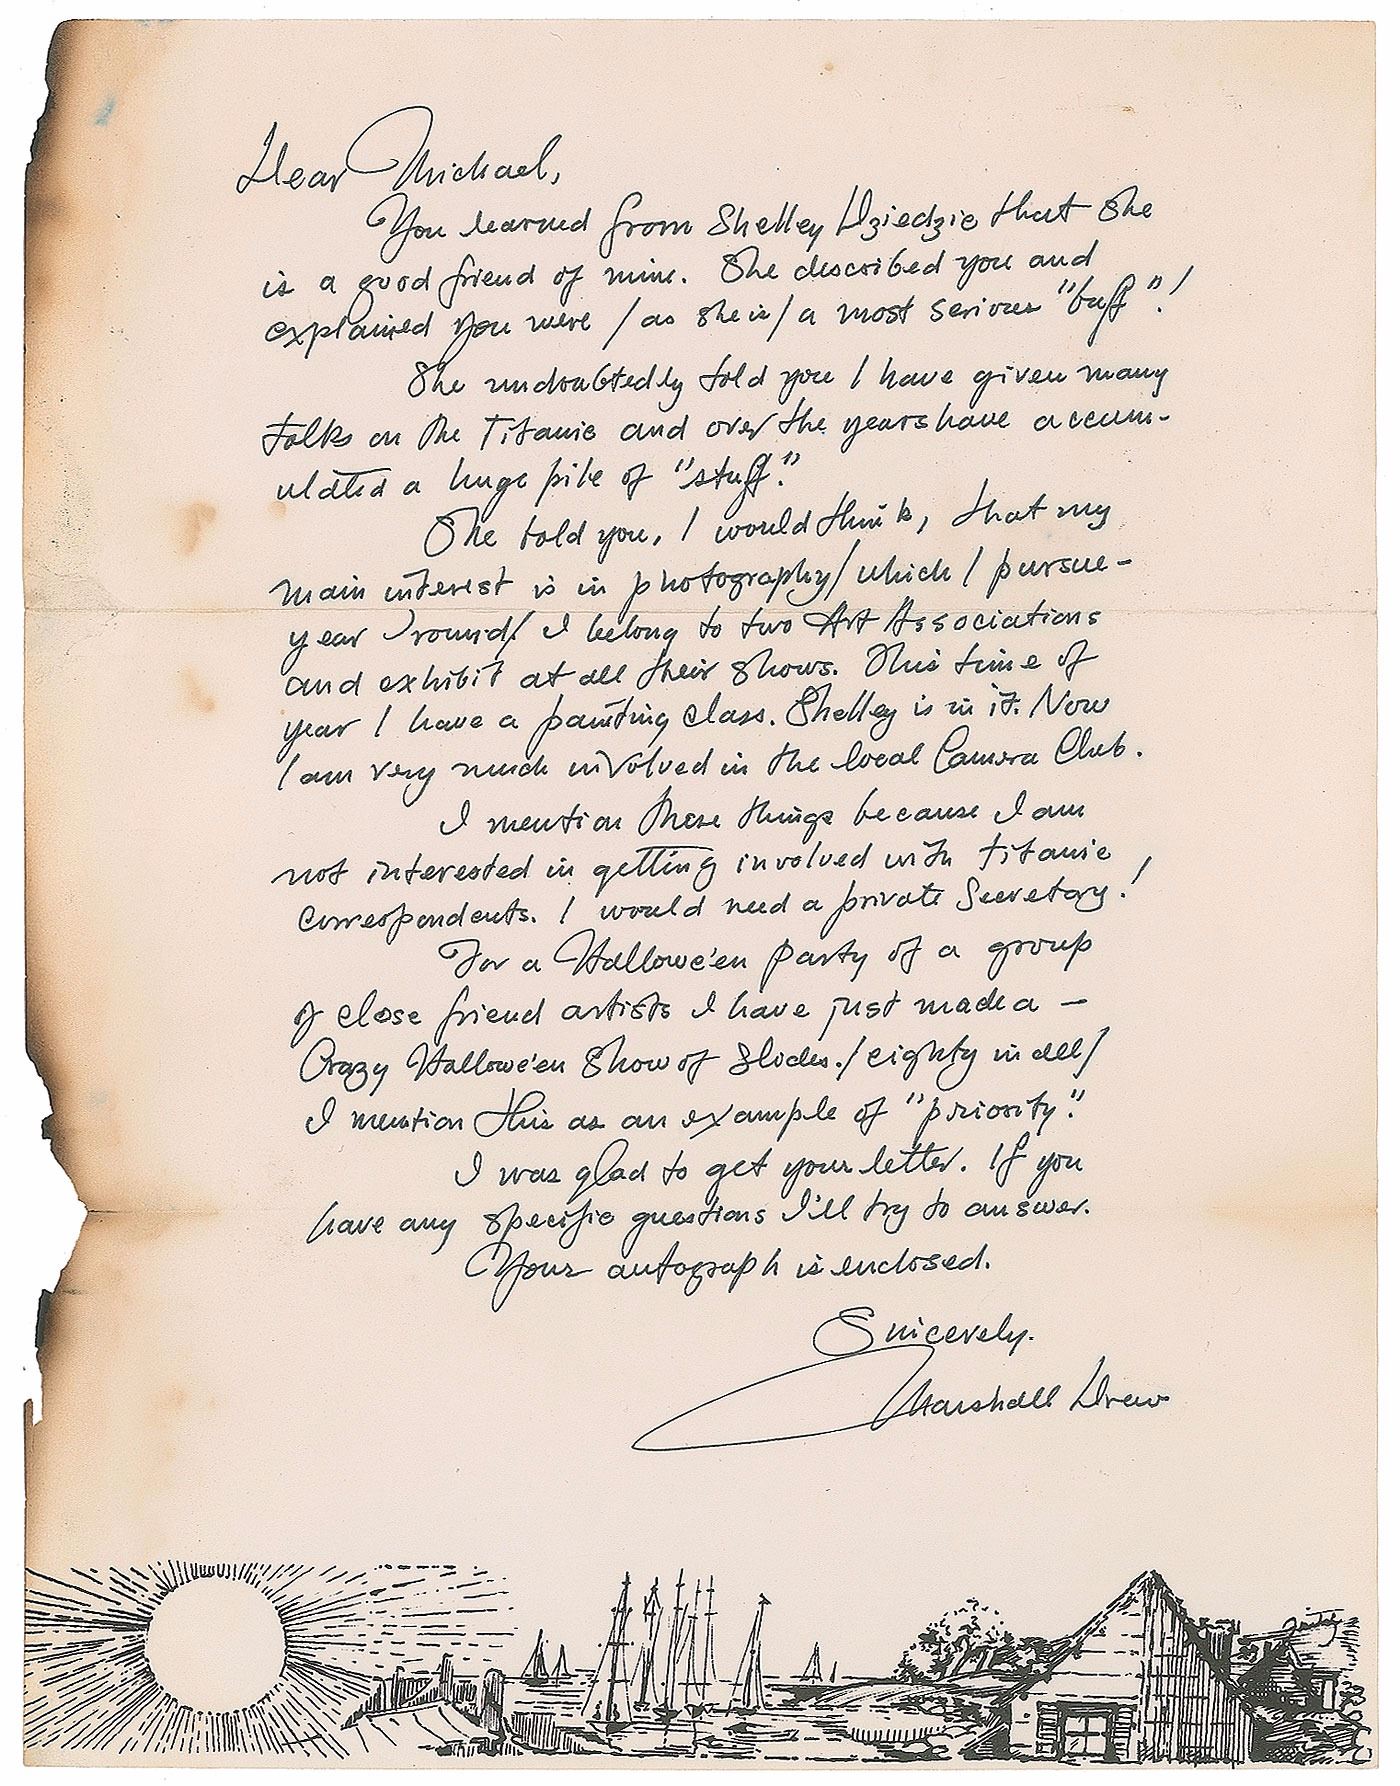 Dear Michael,
You learned from Shelley Dziedzic that she
is a good friend of mine. She described you and
explained you were / as she is / a most serious "buff"!
She undoubtedly told you I have given many
talks on the Titanic and over the years have accum-
ulated a huge pile of "stuff."
She told you, I would think, that my
main interest is in photography / which I pursue -
year 'round / I belong to two Art Associations
and exhibit at all their shows. This time of
year I have a painting class. Shelley is in it. Now
I am very much involved in the local Camera Club.
I mention these things because I am
not interested in getting involved with Titanic
correspondents. I would need a private Secretary!
For a Hallowe'en party of a group
of close friend artists I have just made a —
Crazy Hallowe'en Show of Slides. / eighty in all /
I mention this as an example of "priority."
I was glad to get your letter. If you
have any specific questions I'll try to answer.
Your autograph is enclosed.
Sincerely.
Marshall Drew